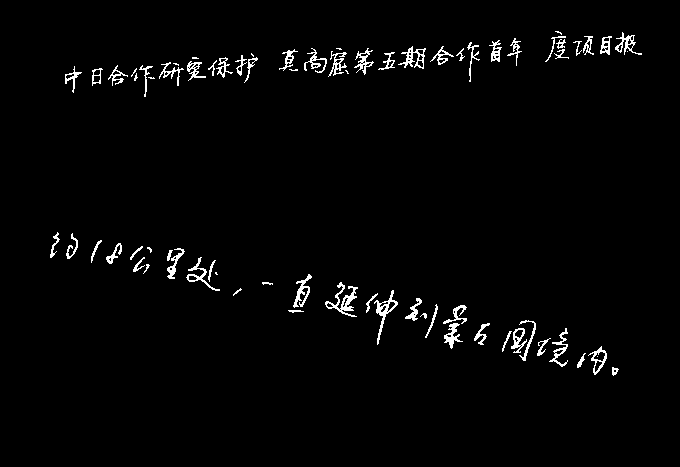 中日合作研究保护 莫高窟第五期合作首年 度项目报
约18公里处,一直延伸到蒙古国境内。